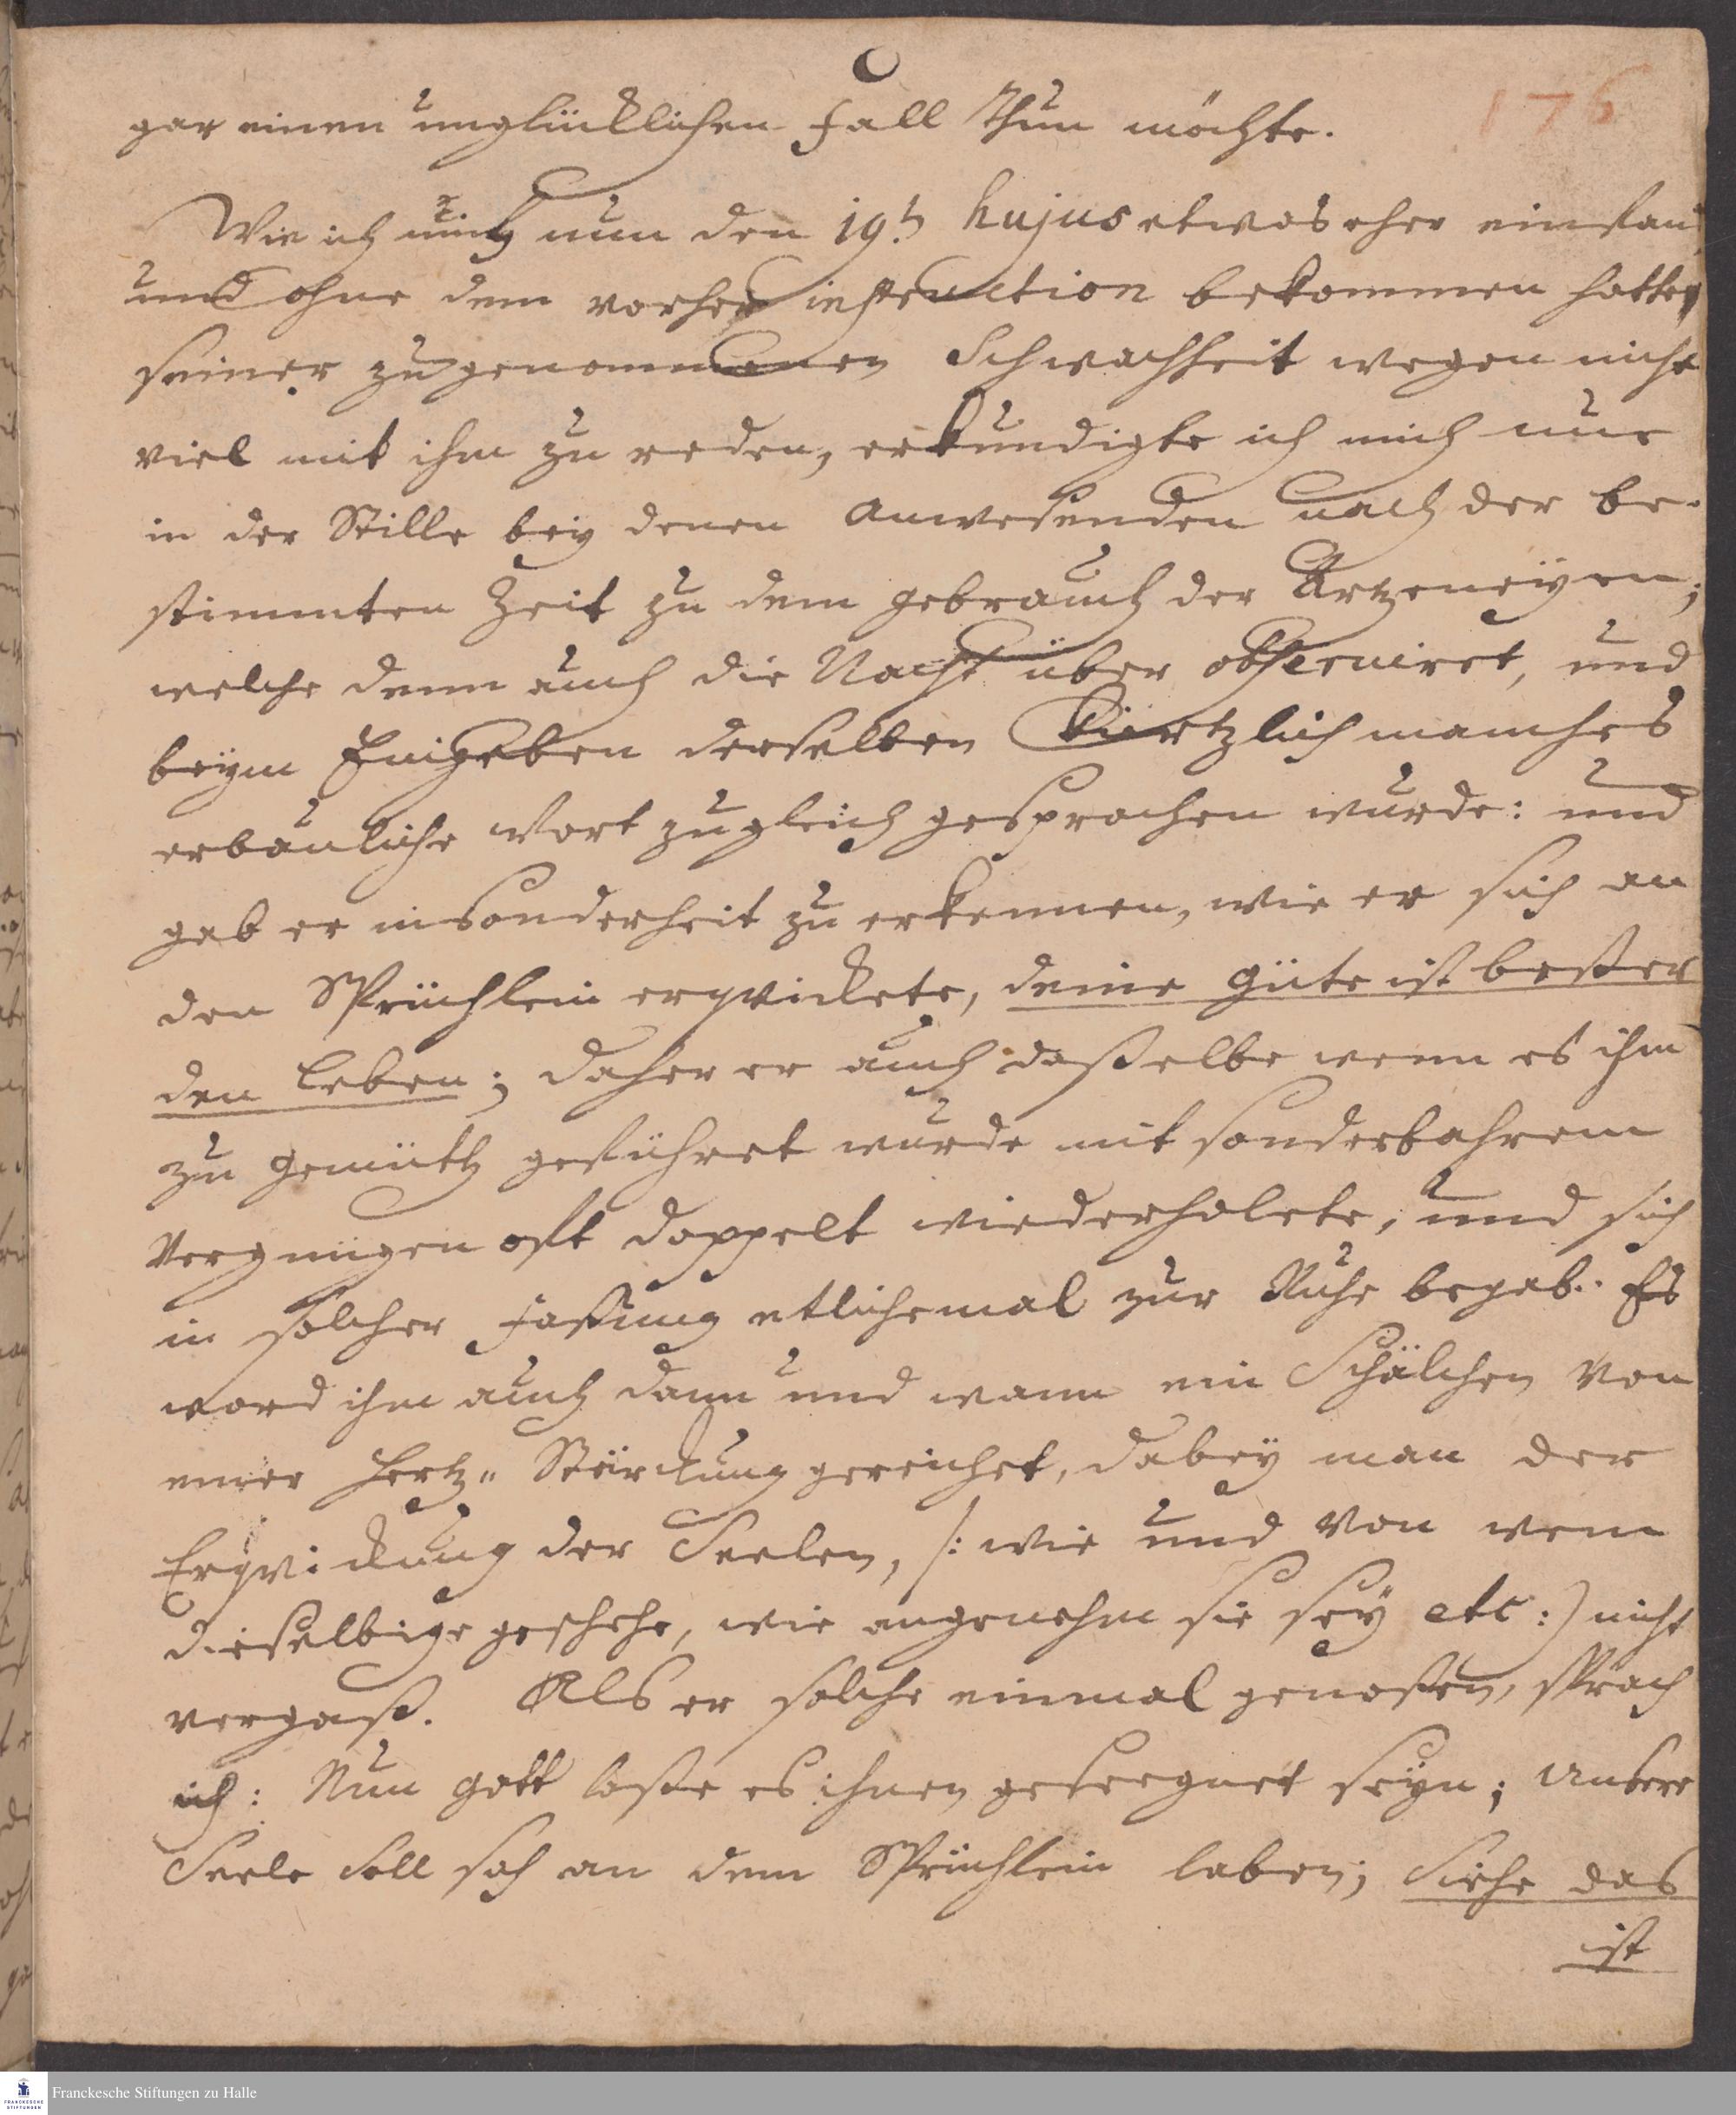 176
gar einen unglücklichen Fall thun möchte.
Wie ich mich nun den 19.t hujus etwas eher einfand
und ohne dem vorher instruction bekommen hatte,
seiner zugenommenen Schwachheit wegen nicht
viel mit ihm zu reden, erkundigte ich mich nur
in der Stille bey denen Anwesenden nach der be-
stimmten Zeit zu dem gebrauch der Artzeneyen;
welche denn auch die Nacht über observiret, und
beym Eingeben derselben kürtzlich manches
erbauliche Wort zugleich gesprochen wurde: und
gab er insonderheit zu erkennen, wie er sich an
den Sprüchlein erqvickete, deine Güte ist beßer
den Leben; daher er auch daßelbe wenn es ihm
zu Gemüth geführet wurde mit sonderbahrem
Vergnügen oft doppelt wiederholete, und sich
in solcher Faßung etlichemal zur Ruhe begab. Es
ward ihm auch dann und wann ein Schälchen von
einer Hertz- Stärckung gereichet, dabey man der
Erqvickung der Seelen, /: wie und von wem
dieselbige geschehe, wie angenehm sie sey etc :) nicht
vergaß. Als er solche einmal genoßen, sprach
ich: Nun Gott laße es ihnen geseegnet seyn; Unsere
Seele soll sich an dem Sprüchlein laben; Siehe das
ist
Franckesche Stiftungen zu Halle